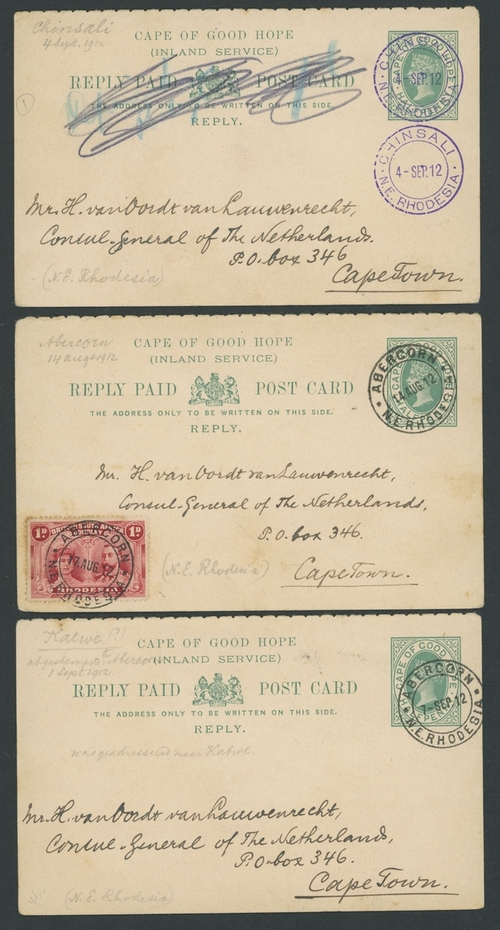 Chinsali
4 Sept. 1912
CAPE OF GOOD HOPE
(INLAND SERVICE)
REPLY PAID POST CARD
THE ADDRESS ONLY TO BE WRITTEN ON THIS SIDE.
REPLY.
1
CHINSALI
4-SEP.12
N.E. RHODESIA
CHINSALI
4-SEP.12
N.E. RHODESIA
Mr. H. van Oordt van Lauwenrecht,
Consul-General of The Netherlands.
P.O. box 346
Cape Town.
(N.E. Rhodesia)
Abercorn
14 Aug 1912
CAPE OF GOOD HOPE
(INLAND SERVICE)
REPLY PAID POST CARD
THE ADDRESS ONLY TO BE WRITTEN ON THIS SIDE.
REPLY.
ABERCORN
14 AUG.12
N.E. RHODESIA
Mr. H. van Oordt van Lauwenrecht,
Consul-General of The Netherlands,
P.O. box 346.
Cape Town.
(N.E. Rhodesia)
1D 1D
ABERCORN
AUG.12
RHODESIA
Katwe (?)
1 Sept 1912.
CAPE OF GOOD HOPE
(INLAND SERVICE)
REPLY PAID POST CARD
THE ADDRESS ONLY TO BE WRITTEN ON THIS SIDE.
REPLY.
CAPE OF GOOD
ABERCORN
7-SEP.12
N.E. RHODESIA
was geadresseerd naar Katwe.
Mr. H. van Oordt van Lauwenrecht,
Consul-General of The Netherlands,
P.O. box 346.
Cape Town.
(N.E. Rhodesia)